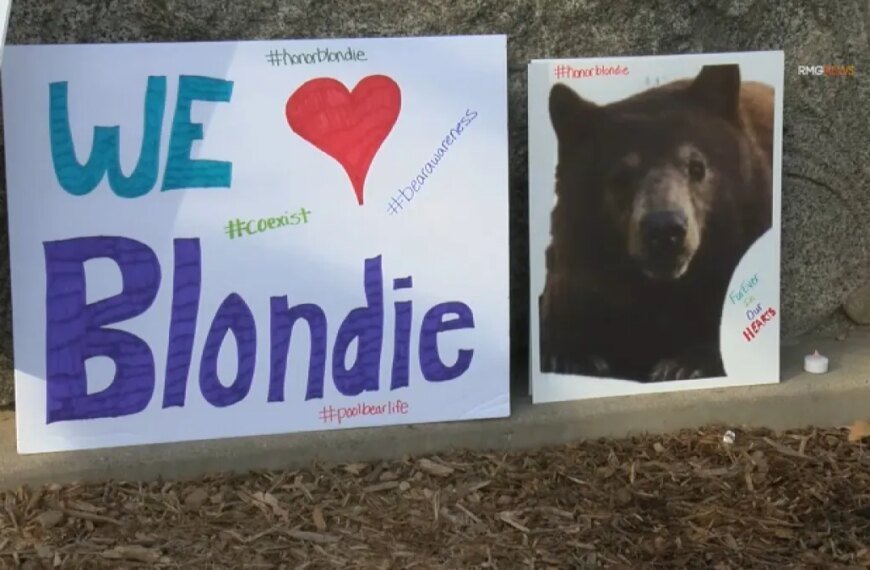 #honorblondie
WE
#bearawareness
#coexist
Blondie
#poolbearlife
#honorblondie
ForEver
In
Our
HEARTS
RMGNEWS